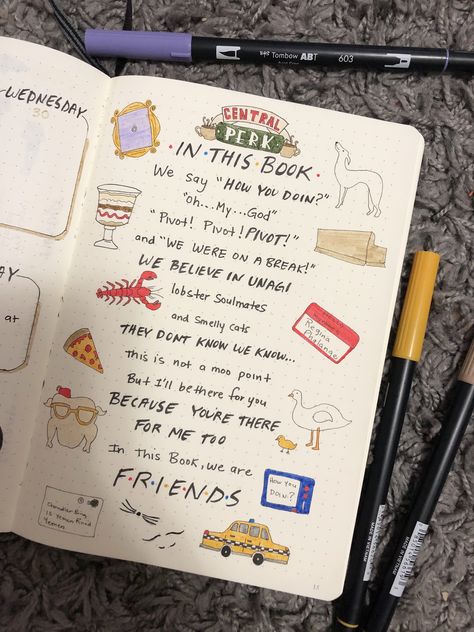 WEDNESDAY
30
DAY
at
CENTRAL
PERK
IN THIS BOOK
We say "HOW YOU DOIN?"
"Oh...My...God"
"Pivot! Pivot! PIVOT!"
and "WE WERE ON A BREAK!"
WE BELIEVE IN UNAGI
lobster Soulmates
and Smelly Cats
THEY DONT KNOW WE KNOW...
This is not a moo point
But I'll be there for you
BECAUSE YOU'RE THERE
FOR ME TOO
In this Book, we are
F.R.I.E.N.D.S
Regina
Phalange
HOW YOU
DOIN?
Chandler Bing
15 Yemen Road
Yemen
TAXI
13
Tombow ABT
603